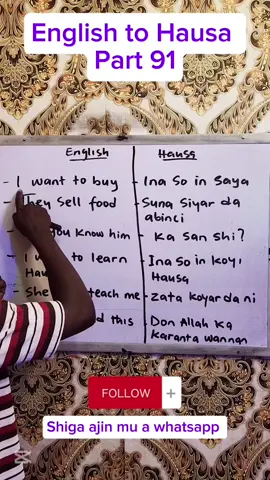 English to Hausa
Part 91
English Hausa
- I want to buy - Ina so in saya
They sell food - Suna siyar da
abinci
you know him - Ka san shi?
to learn - Ina so in koyi
Hausa
She teach me - zata koyar da ni
this - Don Allah ka
karanta wannan
FOLLOW +
Shiga ajin mu a whatsapp